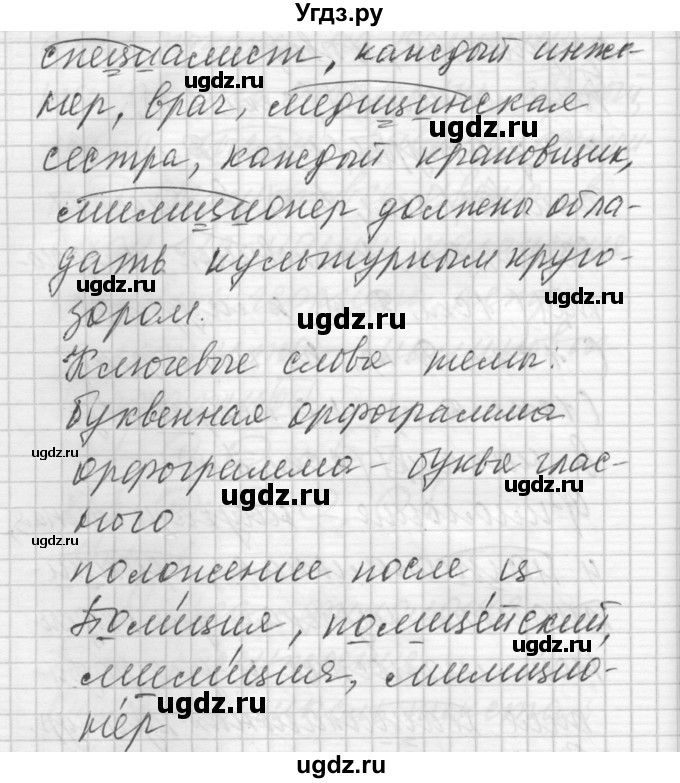 Угдз.ру
специалист, каждый инже-
нер, врач, медицинская
сестра, каждый крановщик,
милиционер должены обла-
дать культурным круго-
зором.
Ключевые слова темы:
буквенная орфограмма
орфограмма - буква глас-
ного
положение после ц
Полиция, полицейский,
милиция, милицио-
нер
ugdz.ru
ugdz.ru
ugdz.ru
ugdz.ru
ugdz.ru
ugdz.ru
ugdz.ru
ugdz.ru
ugdz.ru
ugdz.ru
ugdz.ru
ugdz.ru
ugdz.ru